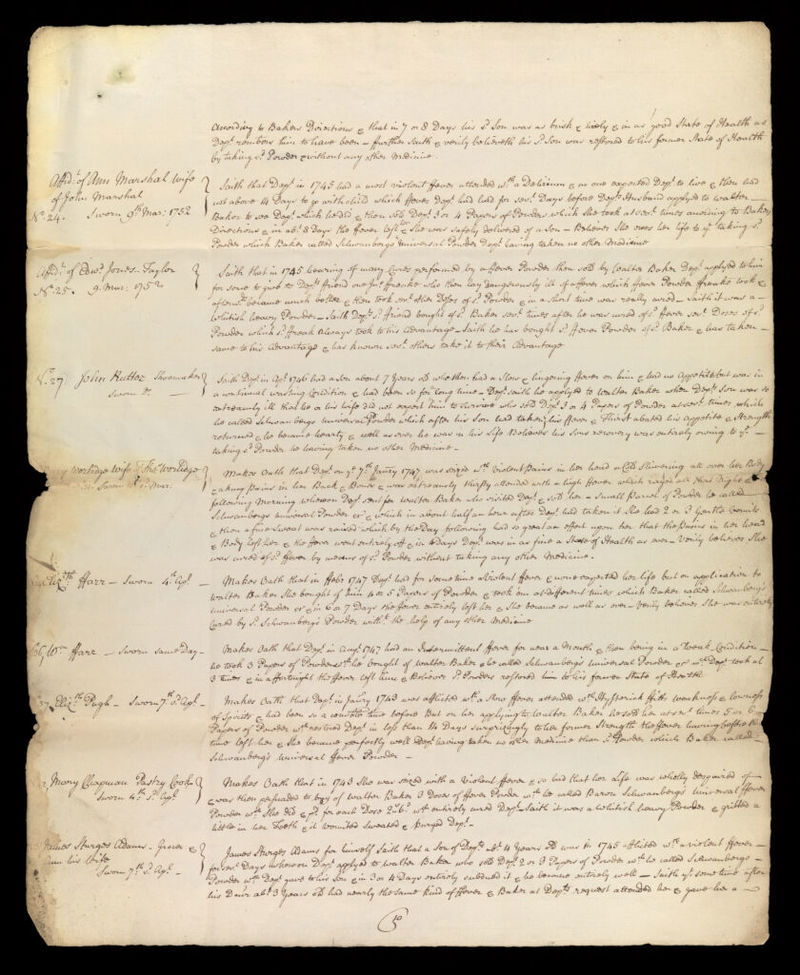 According to Bakers Directions & that in 7 or 8 Days his sd. Son was as brisk & lively & in as good State of Health as
Dept. remembers him to have been – further Saith & verily believeth his sd. Son was restored to his former State of Health
by taking sd. Powder & without any other Medicine.
Affidt. of Ann Marshal Wife
of John Marshal
No. 24. Sworn 9th Mar: 1752
Saith that Dept. in 1745 had a most violent ffever attended wth. a Delirium & no one expected Dept. to live & then had
not above 14 Days to go with child which ffever Dept. had had for sevl. Days before Depts. Husband applyed to Walter
Baker to see Dept. which he did & then sold Dept. 3 or 4 Papers of Powders which She took at sevl. times according to Bakers
Directions & in abt. 8 Days the ffever left her & She was safely delivered of a Son – Believes She owes her life to ye. taking sd.
Powder which Baker called Schwanbergs Universal Powder Dept. having taken no other Medicine
Affidt. of Edwd. Jones Taylor
No. 25. 9 Mar: 1752
Saith that in 1745 hearing of many Cures performed by a ffever Powder then sold by Walter Baker Dept. applyed to him
for some to give to Depts. friend one Jno. ffreake who then lay dangerously ill of a ffever which ffever Powder ffreake took &
afterwds. became much better & then took sevl. other Doses of sd. Powder & in a short time was really cured – saith it was a
whitish heavy Powder – Saith Depts. sd. friend bought of sd. Baker sevl. times after he was cured of sd. ffever sevl. Doses of sd.
Powder which sd. ffreak always took to his Advantage – Saith he has bought sd. ffever Powder of sd. Baker & has taken
same to his Advantage & has known sevl. others take it to their Advantage
No. 27 John Rutter Shoemaker
Sworn Do.
Saith Dept. in Apl. 1746 had a Son about 7 Years old who then had a Slow & lingering ffever on him & had no Appetite but was in
a continual wasting Condition & had been so for long time – Dept. saith he applyed to Walter Baker when Depts. Son was so
extreamly ill that he or his wife did not expect him to survive who sold Dept. 3 or 4 Papers of Powder at sevl. times which
he called Schwanbergs universal Powder which after his Son had taken his ffever & Thirst abated his Appetite & Strength
returned & he became hearty & well as ever he was in his Life Believes his Sons recovery was entirely owing to ye.
taking sd. Powder he having taken no other Medicine –
Worlidge wife of Jno. Worlidge
Sworn Mar:
Makes Oath that Dept. on ye. 7th. Janry 1747 was seized wth. violent Pains in her head a Cold Shivering all over her Body
& aking Pains in her Back & Bones & was extreamly thirsty attended with a high ffever which raged all that Night &
following Morning whereon Dept. sent for Walter Baker who visited Dept. & sold her a Small Parcel of Powder he called
Schwanbergs universal Powder & which in about half an hour after Dept. had taken it She had 2 or 3 Gentle Vomits
& then a fine Sweat was raised which by the Day following had so great an effect upon her that the Pains in her head
& Body left her & the ffever went entirely off & in 4 Days Dept. was in as fine a State of Health as ever – Verily believes She
was cured of sd. ffever by means of sd. Powder without taking any other Medicine.
Elizth. ffarr – Sworn 4th. Apl.
Makes Oath that in ffebr 1747 Dept. had for some time a Violent ffever & none expected her life but on application to
Walter Baker She bought of him 4 or 5 Papers of Powder & took em at different times which Baker called Schwanberg's
universal Powder & in 6 or 7 Days the ffever entirely left her & She became as well as ever – Verily believes She was entirely
Cured by sd. Schwanberg's Powder witht. the help of any other Medicine
Wm. ffarr – Sworn same Day
Makes Oath that Dept. in Augt. 1747 had an Intermittent ffever for near a Month & then being in a Weak Condition
he took 3 Papers of Powders wch. he bought of Walter Baker & he called Schwanbergs universal Powder & wch. Dept. took at
3 times & in a ffortnight the ffever left him & Believes sd. Powders restored him to his former State of Health
Elizth. Pugh – Sworn 7th. sd. Apl.
Makes Oath that Dept. in Janry 1743 was afflicted wth. a slow ffever attended wth. Hysterick ffits weakness & lowness
of Spirits & had been so a considble time before But on her applying to Walter Baker he sold her at sevl. times 5 or 6
Papers of Powder wch. restored Dept. in less than 14 Days surprizingly to her former Strength the ffever having before that
time left her & She became perfectly well Dept. having taken no other Medicine than sd. Powder which Baker called
Schwanberg's universal ffever Powder –
Mary Chapman Pastry Cook
Sworn 4th. sd. Apl.
Makes Oath that in 1743 She was seized with a Violent ffever & so bad that her Life was wholly despaired of
& was then perswaded to buy of Walter Baker 3 Doses of ffever Powder wch. he called Baron Schwanberg's Universal ffever
Powder wch. She did & pd. for each Dose 2s. 6d. wch. entirely cured Dept. Saith it was a Whitish heavy Powder & gritted a
little in her Teeth & it vomited Sweated & purged Dept. –
James Sturges Adams – Grocer &
Ann his Wife
Sworn 7th. sd. Apl. –
James Sturges Adams for himself Saith that a Son of Depts. abt. 4 Years old was in 1745 afflicted wth. a violent ffever
for sevl. Days whereon Dept. applyed to Walter Baker who sold Dept. 2 or 3 Papers of Powder wch. he called Schwanbergs
Powder wch. Dept. gave to his Son & in 3 or 4 Days entirely subdued it & he became entirely well – Saith yt. some time after
his Daur. abt. 3 Years old had nearly the same kind of ffever & Baker at Depts. request attended her & gave her a
10